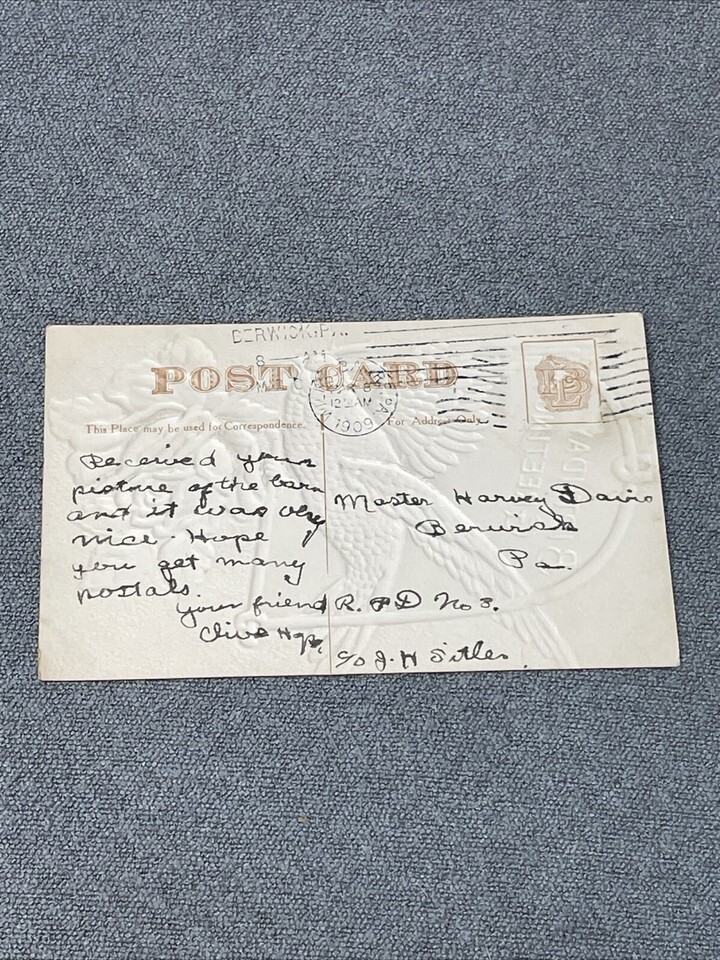 BERWICK, PA.
8 - AM
POST CARD
12 - AM
1909
This Place may be used for Correspondence.
For Address Only.
Received your
picture of the barn
and it was very
nice. Hope
you get many
postals.
your friend
Clive
Master Harvey Davis
Berwick
Pa.
R. F D No 3.
c/o J. H Sitler.